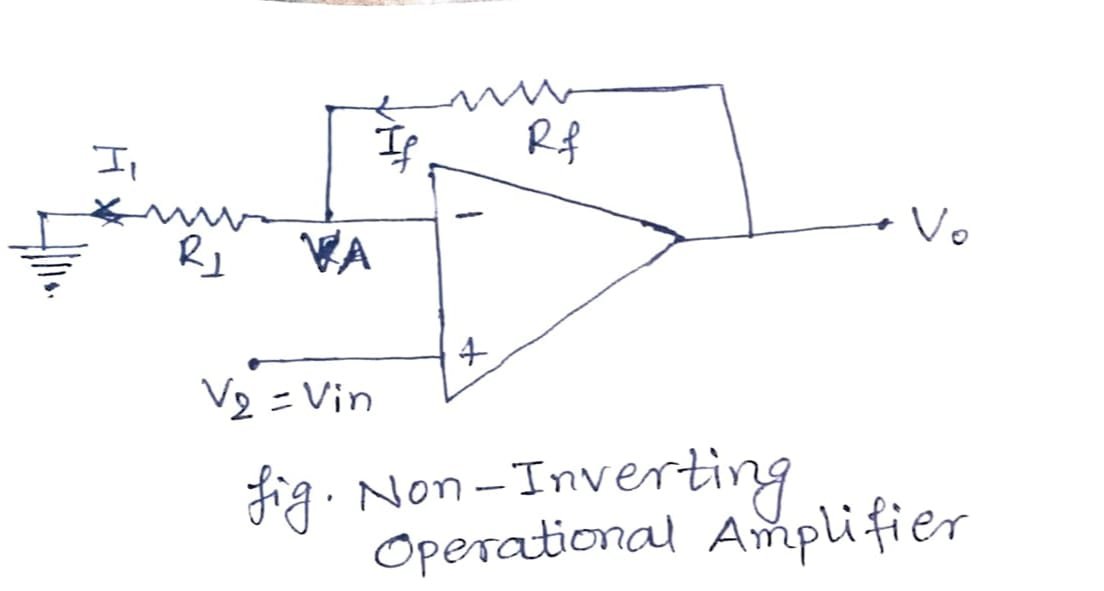 I₁
If
Rf
R1
VA
−
V₀
+
V2 = Vin
fig. Non-Inverting
Operational Amplifier